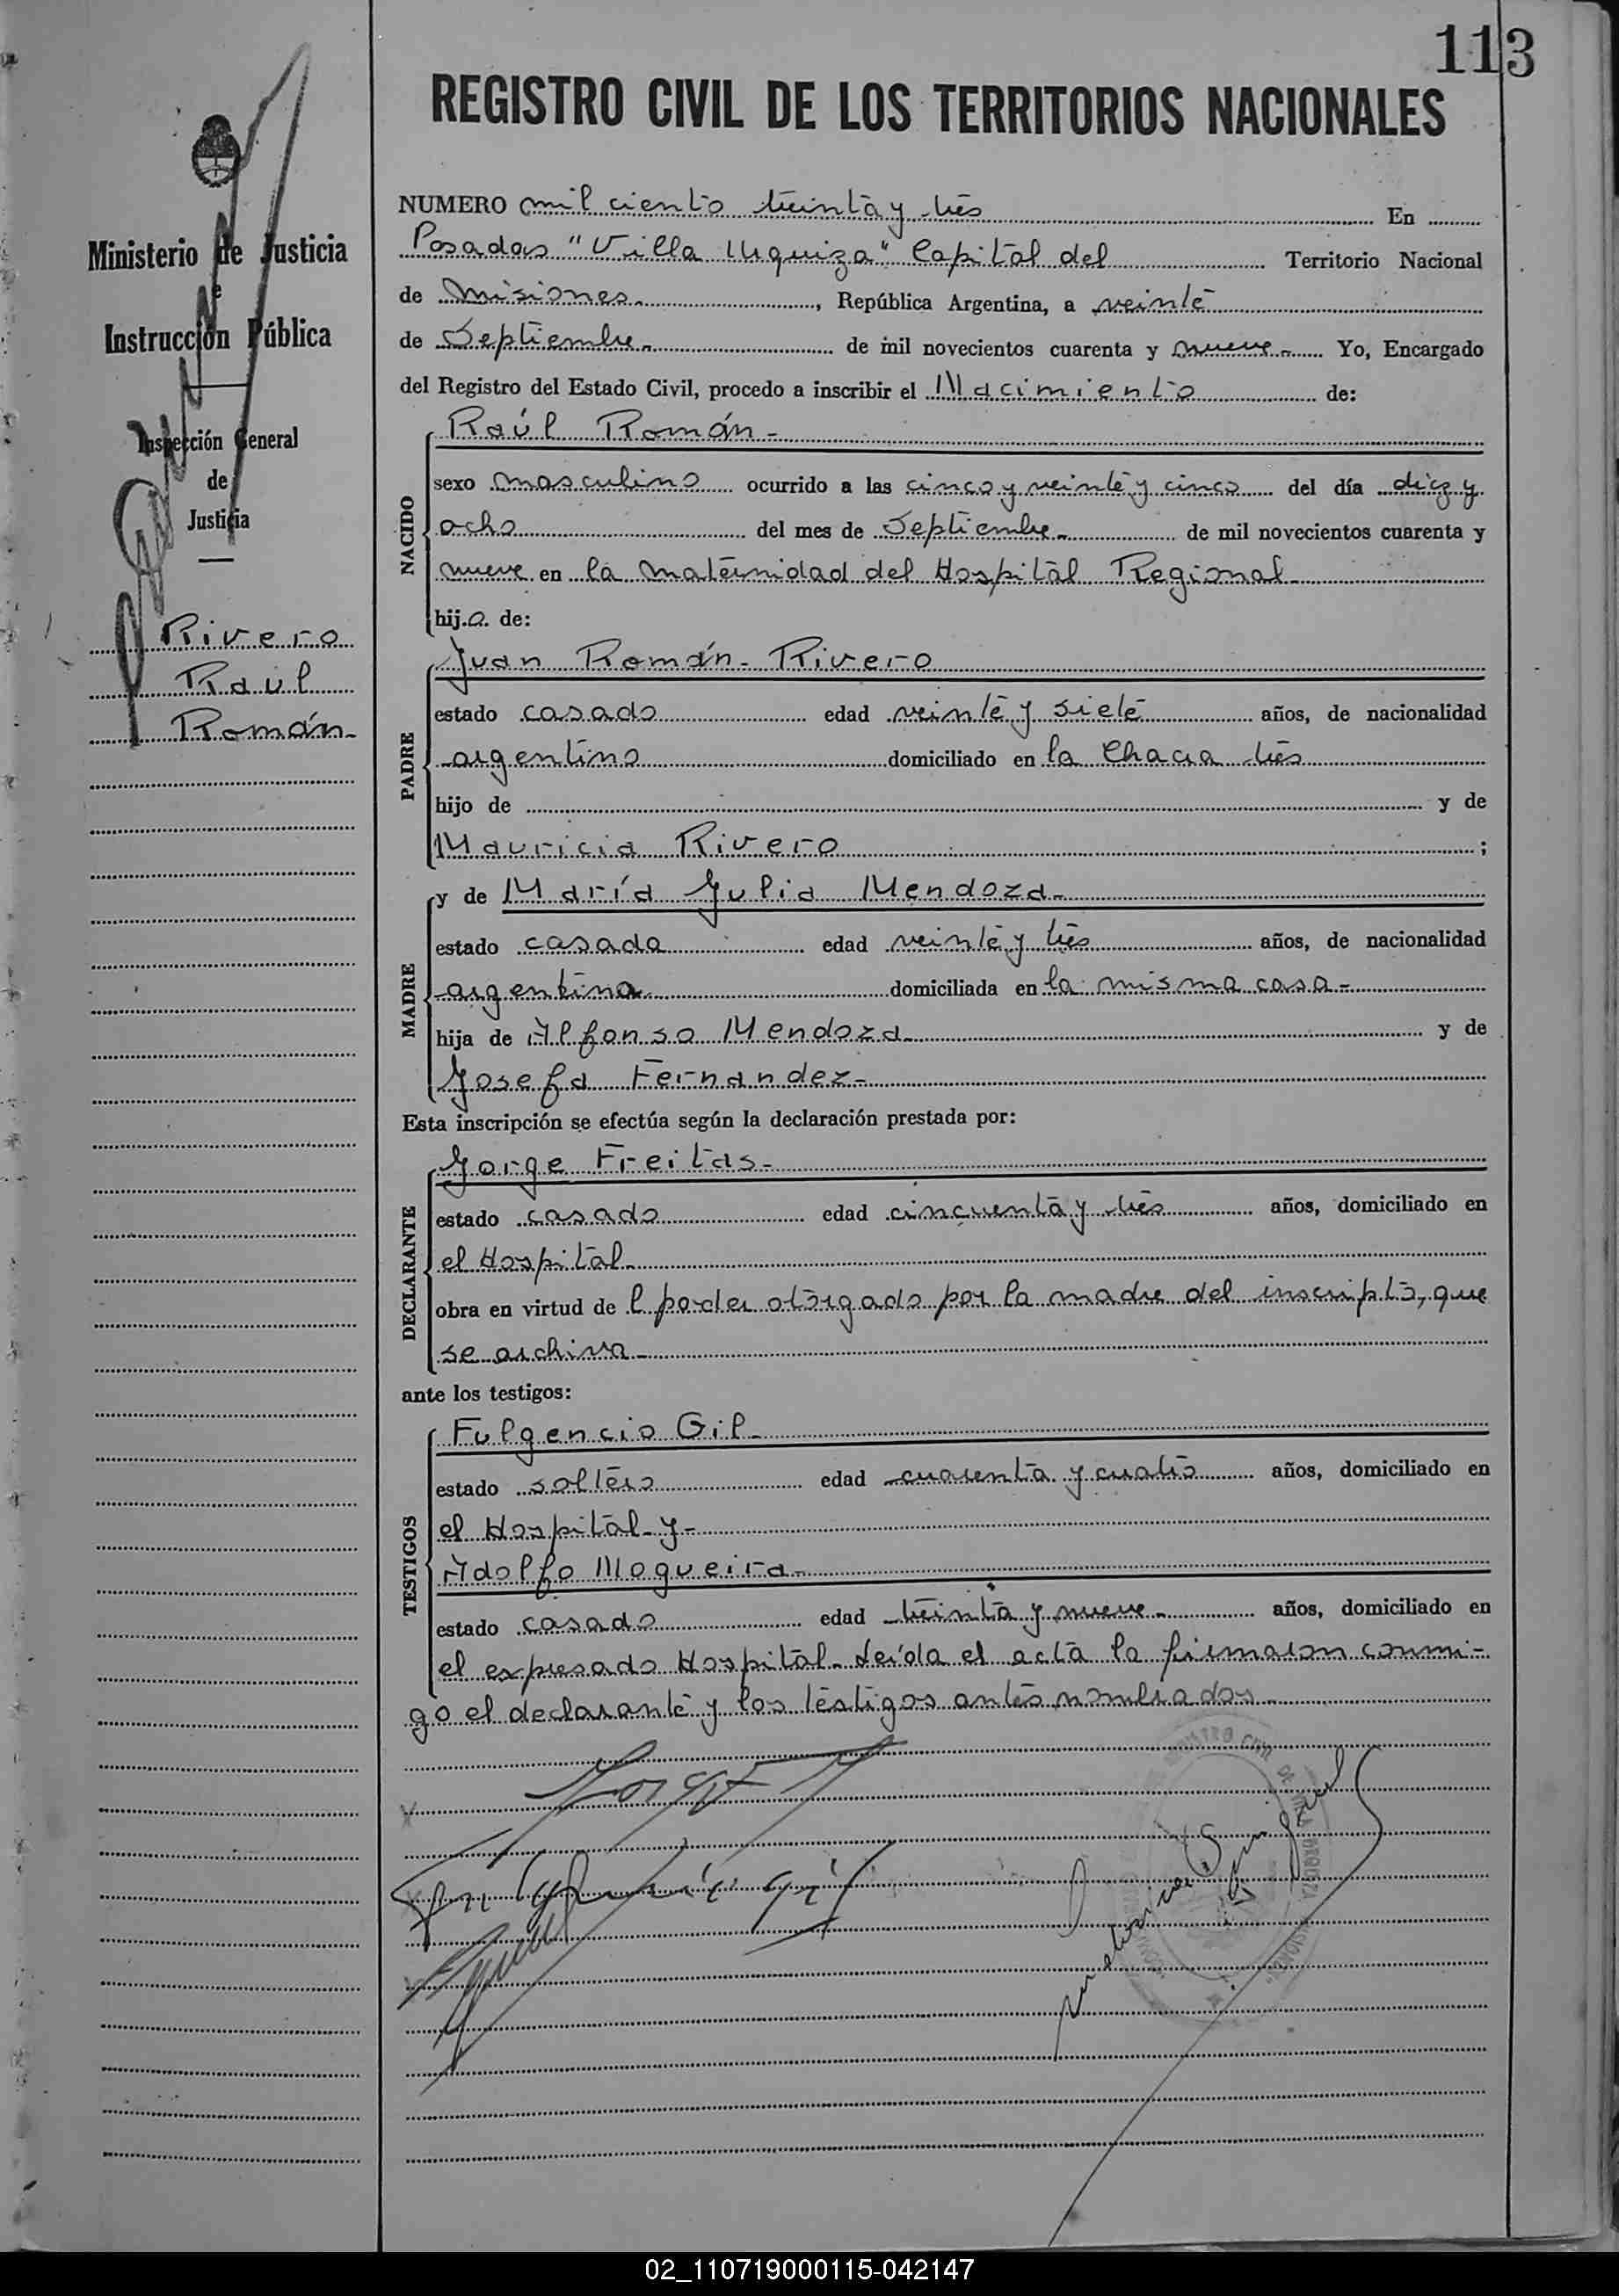 113
REGISTRO CIVIL DE LOS TERRITORIOS NACIONALES
Ministerio de Justicia
e
Instrucción Pública
Inspección General
de
Justicia
Rivero
Raúl
Román-
NUMERO mil ciento treinta y tres En
Posadas "Villa Urquiza" Capital del Territorio Nacional
de Misiones, República Argentina, a veinte
de Septiembre- de mil novecientos cuarenta y nueve- Yo, Encargado
del Registro del Estado Civil, procedo a inscribir el Nacimiento de:
NACIDO
Raúl Román-
sexo masculino ocurrido a las cinco y veinte y cinco del día diez y
ocho del mes de Septiembre- de mil novecientos cuarenta y
nueve en la maternidad del Hospital Regional-
hijo de:
PADRE
Juan Román- Rivero
estado casado edad veinte y siete años, de nacionalidad
argentino domiciliado en la Chacra tres
hijo de y de
Mauricia Rivero ;
MADRE
y de María Julia Mendoza-
estado casada edad veinte y tres años, de nacionalidad
argentina domiciliada en la misma casa-
hija de Alfonso Mendoza- y de
Josefa Fernandez-
Esta inscripción se efectúa según la declaración prestada por:
DECLARANTE
Jorge Freitas-
estado casado edad cincuenta y tres años, domiciliado en
el Hospital-
obra en virtud del poder otorgado por la madre del inscripto, que
se archiva-
ante los testigos:
TESTIGOS
Fulgencio Gil-
estado soltero edad cuarenta y cuatro años, domiciliado en
el Hospital- y-
Adolfo Nogueira-
estado casado edad treinta y nueve- años, domiciliado en
el expresado Hospital- Leída el acta la firmaron conmi-
go el declarante y los testigos antes nombrados-
REGISTRO CIVIL DE VILLA URQUIZA MISIONES
02_110719000115-042147